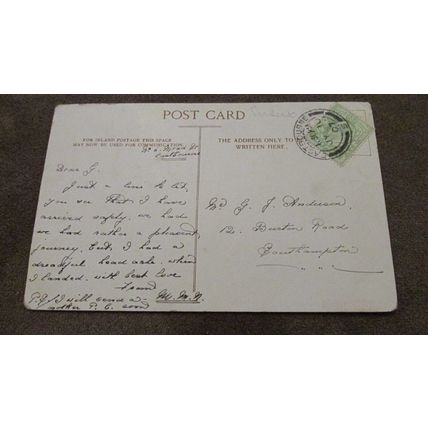 POST CARD
FOR INLAND POSTAGE THIS SPACE
MAY NOW BE USED FOR COMMUNICATION.
THE ADDRESS ONLY TO
WRITTEN HERE.
Eastbourne
EASTBOURNE
Dear G.
Just a line to let
you see that I have
arrived safely. we had
we had rather a pleasant
journey. but, I had a
dreadful head ache when
I landed. with best love
from
M. M. N.
P.S. I will send a-
nother P. C. soon
G. J. Anderson,
12, Burton Road
Southampton